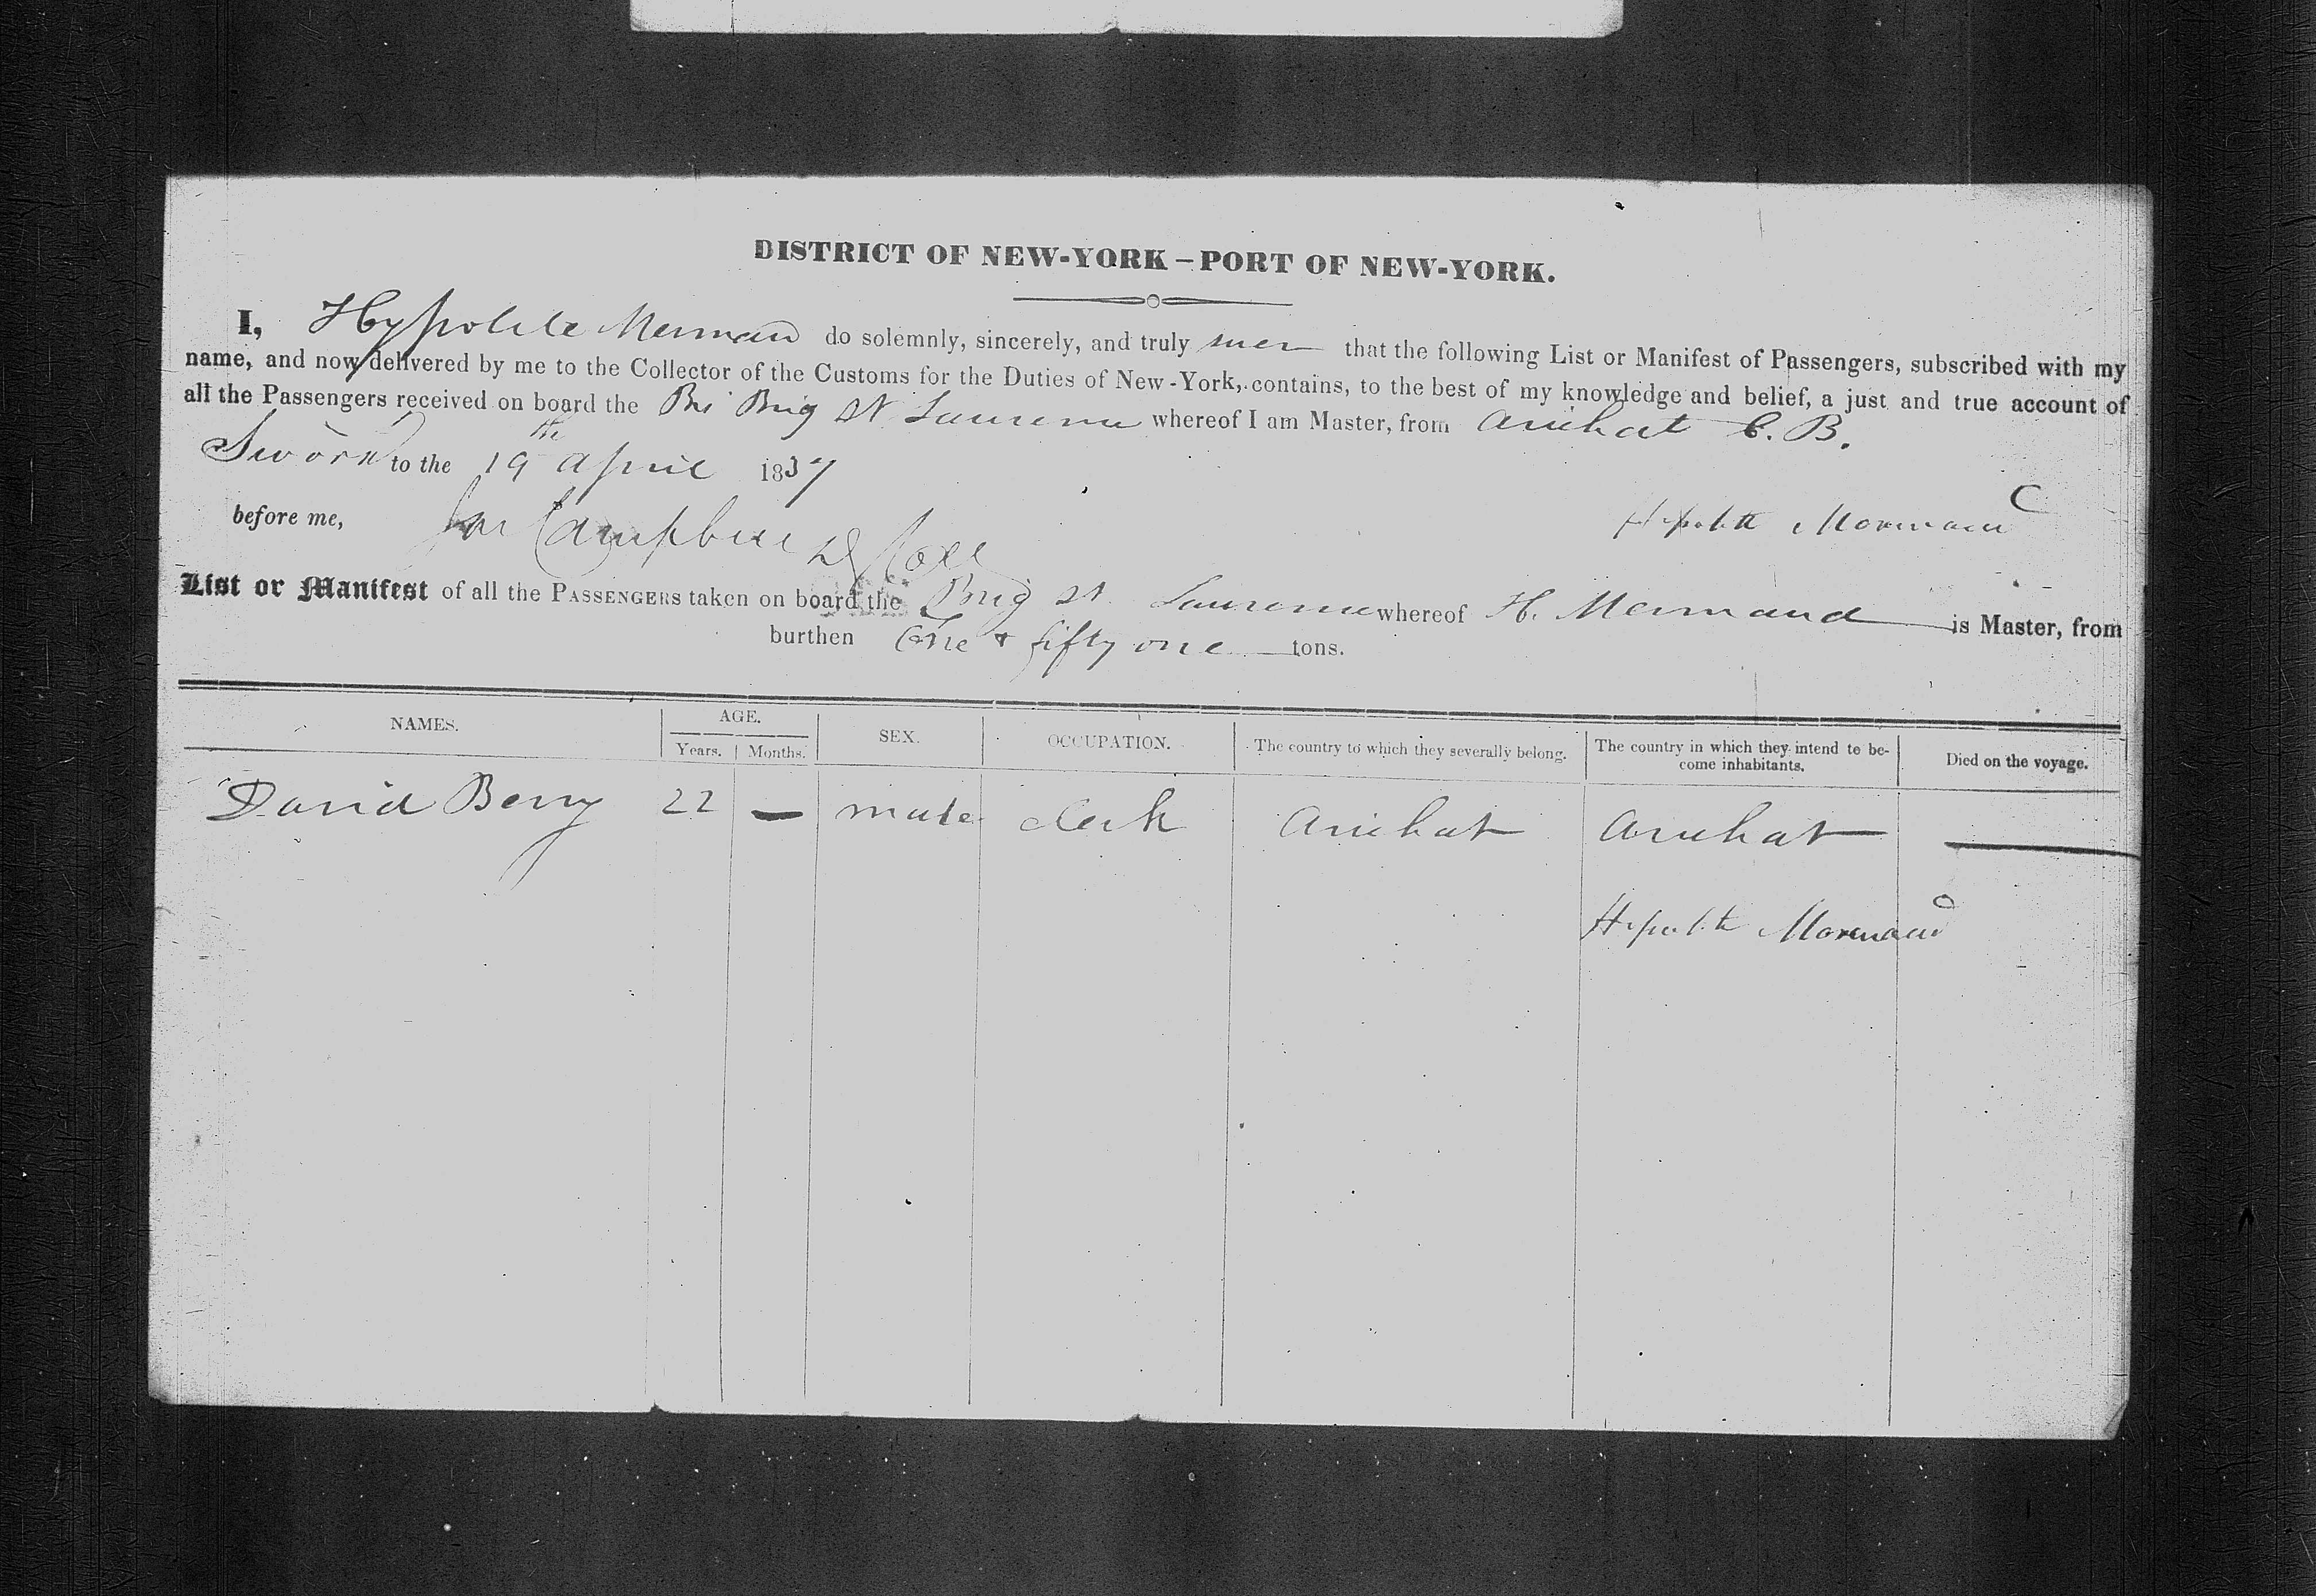 DISTRICT OF NEW-YORK – PORT OF NEW-YORK.
I, Hyppolite Mermaud do solemnly, sincerely, and truly swear that the following List or Manifest of Passengers, subscribed with my
name, and now delivered by me to the Collector of the Customs for the Duties of New-York, contains, to the best of my knowledge and belief, a just and true account of
all the Passengers received on board the Bri Brig St Laurence whereof I am Master, from Arichat C. B.
Sworn to the 19th April 1837
before me, Campbell D Coll
Hipolite
List or Manifest of all the PASSENGERS taken on board the Brig St. Laurence whereof H. Mermaud is Master, from
burthen One & fifty one tons.
NAMES. AGE. SEX. OCCUPATION. The country to which they severally belong. The country in which they intend to be-
come inhabitants. Died on the voyage.
Years. Months.
David Berry 22 — male clerk Arichat Arichat —
Hipolite